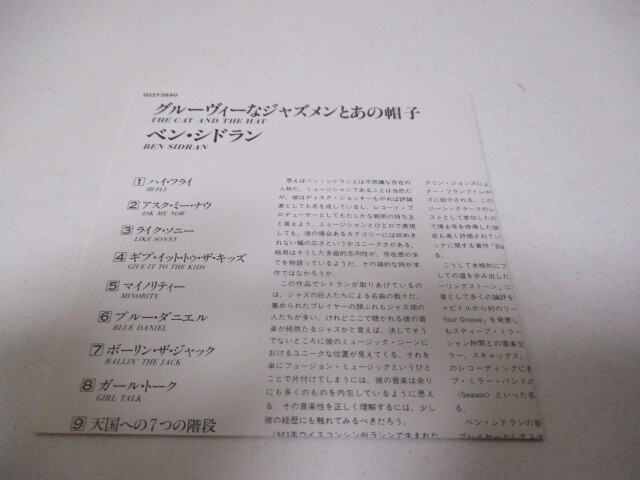 D32Y3840
グルーヴィーなジャズメンとあの帽子
THE CAT AND THE HAT
ベン・シドラン
BEN SIDRAN
1 ハイ・フライ
HI-FLY
2 アスク・ミー・ナウ
ASK ME NOW
3 ライク・ソニー
LIKE SONNY
4 ギブ・イット・トゥ・ザ・キッズ
GIVE IT TO THE KIDS
5 マイノリティー
MINORITY
6 ブルー・ダニエル
BLUE DANIEL
7 ボーリン・ザ・ジャック
BALLIN' THE JACK
8 ガール・トーク
GIRL TALK
9 天国への7つの階段
思えばベン・シドランとは不思議な存在の
人物だ。ミュージシャンであることは当然だ
が、彼はディスク・ジョッキーもやれば評論
家としても名を成しているし、レコード・プ
ロデューサーとしてもたしかな腕前の持ち主
と言えよう。ミュージシャンとひと口で表現
しても、彼の場合あるカテゴリーには収めき
れない幅の広さというかユニークさがある。
結局はそうした多面的志向性が、存在感の全
てを物語っているようだ。その端的な例が本
作ではなかろうか。
この作品でシドランが取りあげているの
は、ジャズの巨人たちによる名曲の数々だ。
集められたプレイヤーの顔ぶれもジャズ畑の
人たちが多い。けれどここで聴かれる彼の音
楽が純然たるジャズかと言えば、決してそう
でないところに彼のミュージック・シーンに
おけるユニークな位置が見えてくる。それを
単にフュージョン・ミュージックというひと
ことで片付けてしまうには、彼の音楽は余り
にも多くのものを内包しているように思え
る。その音楽性を正しく理解するには、少し
彼の経歴にも触れてみるべきだろう。
1943年ウイスコンシン州ラシンで生まれた
グリン・ジョンズによ
ター・フランプトンや
ズに紹介される。この
ジーン・クラークのレ
ストとして参加したの
て博士号を修得した彼
在も高く評価されてい
ックに関する著作「Bla
こうして本格的にプ
しての道を歩み出した
ーリングストーン」に
者として多くの論評を
ャピトルから初のリー
hour Groove」を発表し
もスティーブ・ミラー
シャン仲間との音楽交
ラー、スキャッグス、
のレコーディングにも
ブ・ミラー・バンドの
(Season)といった名
る。
ベン・シドランの音
プレイヤーとしてスタ